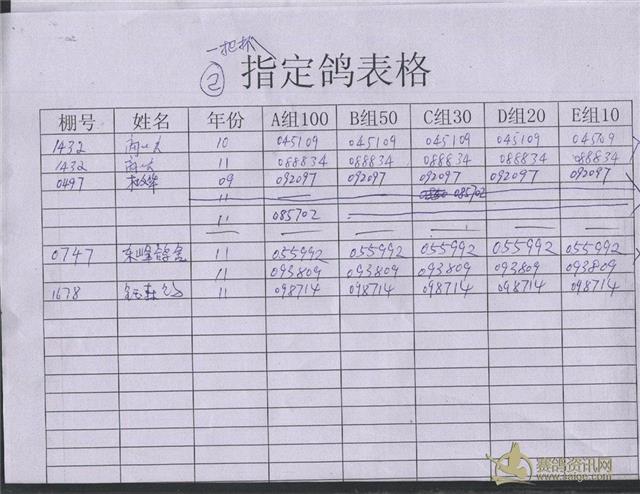 一把抓
② 指定鸽表格
棚号 姓名 年份 A组100 B组50 C组30 D组20 E组10
1432 10 045109 045109 045109 045109 045109
1432 11 088834 088834 088834 088834 088834
0497 09 092097 092097 092097 092097 092097
11 — 085702
11 085702
0747 东峰鸽舍 11 055992 055992 055992 055992 055992
11 093809 093809 093809 093809 093809
1678 11 098714 098714 098714 098714 098714
赛鸽资讯网